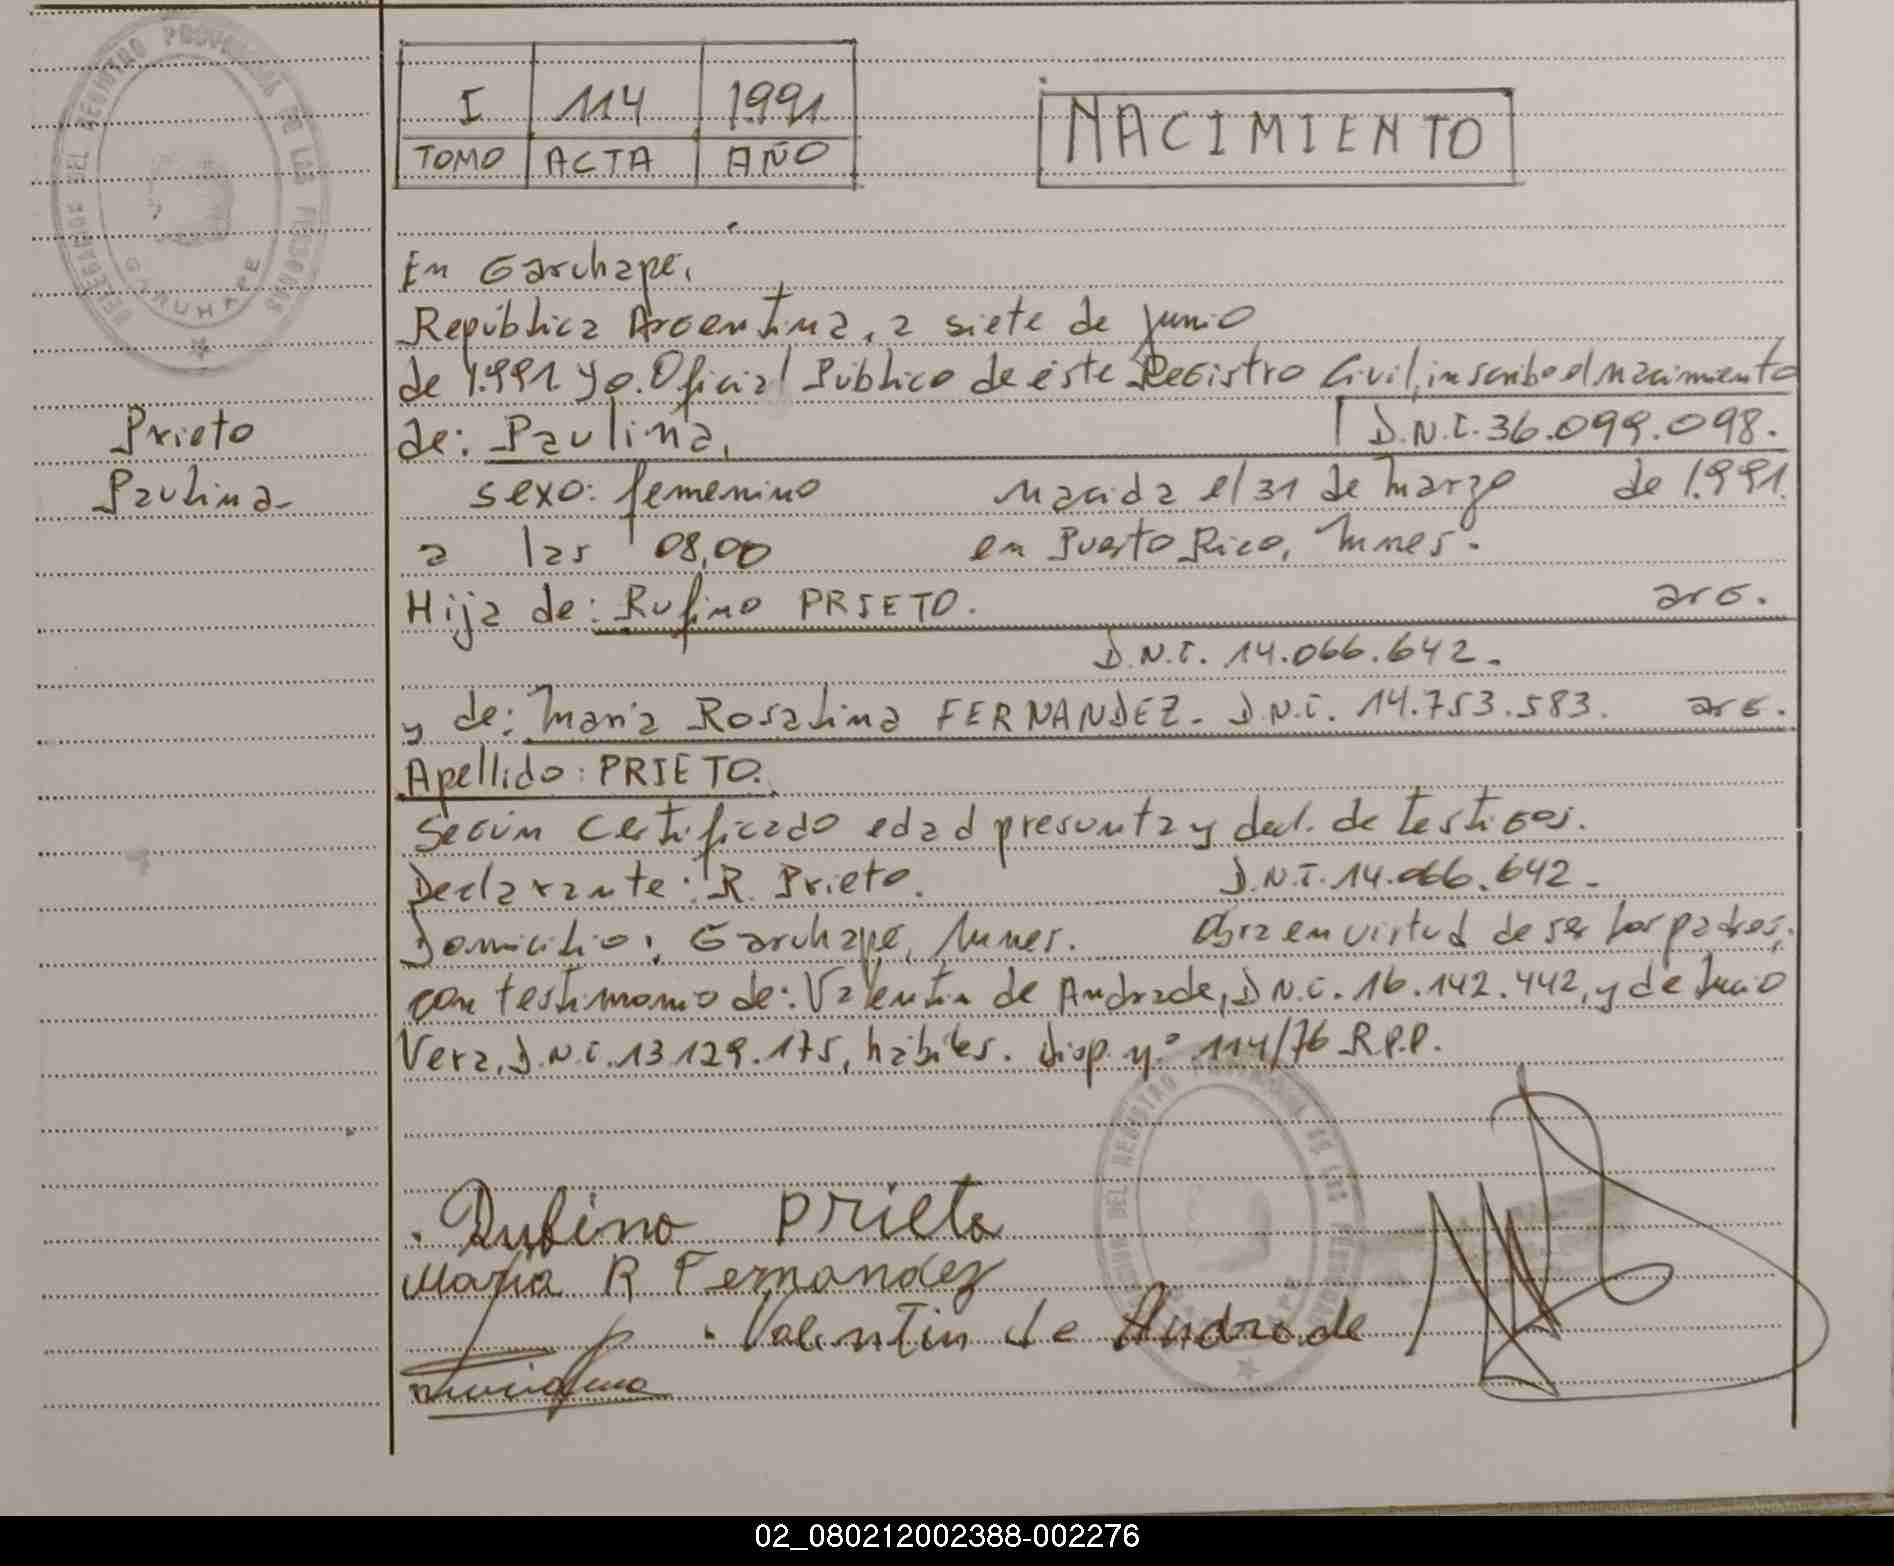 DELEGADOR DEL REGISTRO PROVINCIAL DE LAS PERSONAS
GARUHAPE
I 114 1991
TOMO ACTA AÑO
NACIMIENTO
En Garuhape,
República Argentina, a siete de junio
de 1.991 Yo. Oficial Público de éste Registro Civil, inscribo el nacimiento
Prieto
Paulina-
de: Paulina, D.N.I. 36.099.098.
sexo: femenino nacida el 31 de marzo de 1.991.
a las 08,00 en Puerto Rico, Mnes.
Hija de: Rufino PRIETO. arg.
D.N.I. 14.066.642.
y de: María Rosalina FERNANDEZ. D.N.I. 14.753.583. arg.
Apellido: PRIETO.
Según Certificado edad presunta y decl. de testigos.
Declarante: R. Prieto. D.N.I. 14.066.642.
Domicilio: Garuhapé, Mnes. Obra en virtud de ser los padres,
con testimonio de: Valentín de Andrade, D.N.I. 16.142.442, y de Lucio
Vera, D.N.I. 13.129.175, hábiles. Disp. nº 114/76 R.P.P.
Rufino Prieto
Maria R Fernandez
Valentin de Andrade
02_080212002388-002276